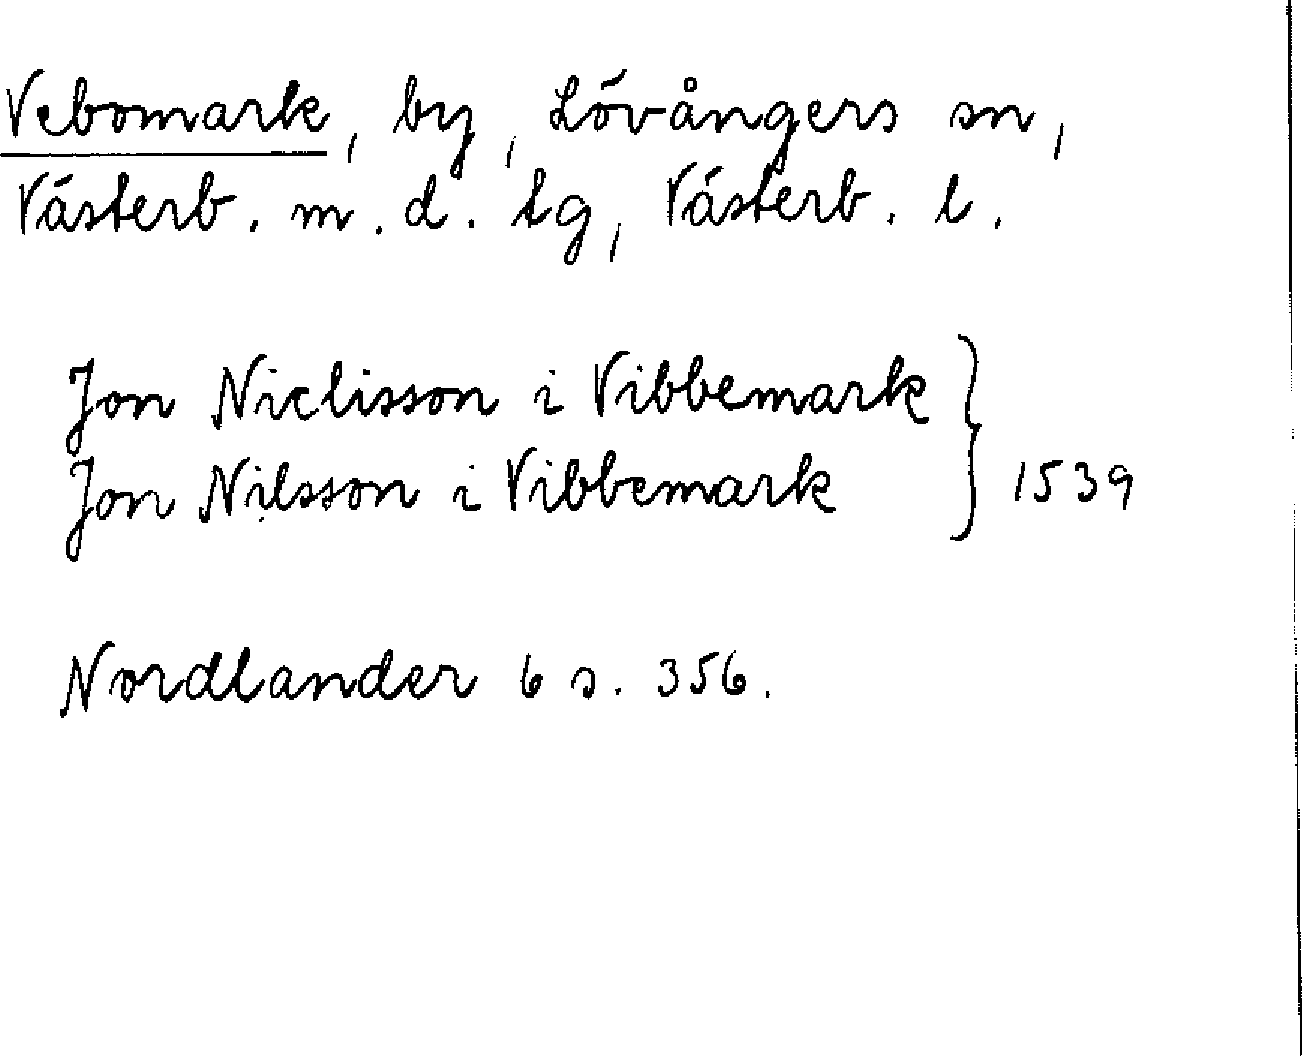 Vebomark, by, Lövångers sn,
Västerb. m. d. tg, Västerb. l.
Jon Niclisson i Vibbemark
Jon Nilsson i Vibbemark } 1539
Nordlander 6 s. 356.